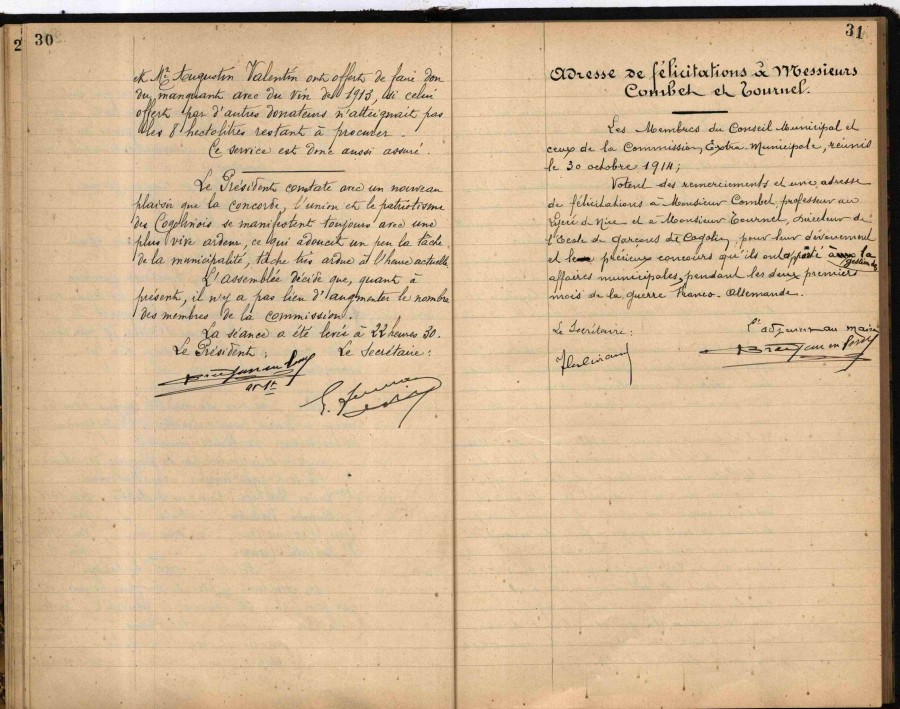 2 30
et Mr Augustin Valentin ont offert de faire don
du manquant avec du vin de 1913, si celui
offert par d'autres donateurs n'atteignait pas
les 8 hectolitres restant à procurer.
Ce service est donc aussi assuré.
Le Président constate avec un nouveau
plaisir que la concorde, l'union et le patriotisme
des Cogolinois se manifestent toujours avec une
plus vive ardeur, ce qui adoucit un peu la tâche
de la municipalité, tâche très ardue à l'heure actuelle
L'assemblée décide que, quant à
présent, il n'y a pas lieu d'augmenter le nombre
des membres de la commission.
La séance a été levée à 22 heures 30.
Le Président : Le Secrétaire :
31
Adresse de félicitations à Messieurs
Combet et Tournel.
Les Membres du Conseil Municipal et
ceux de la Commission Extra Municipale, réunis
le 30 octobre 1914;
Votent des remerciements et une adresse
de félicitations à Monsieur Combet, professeur au
Lycée de Nice et à Monsieur Tournel, Directeur de
l'École de garçons de Cogolin, pour leur dévouement
et le précieux concours qu'ils ont apporté à la gestion des
affaires municipales, pendant les deux premiers
mois de la guerre Franco-Allemande.
Le Secrétaire : L'adjoint au maire